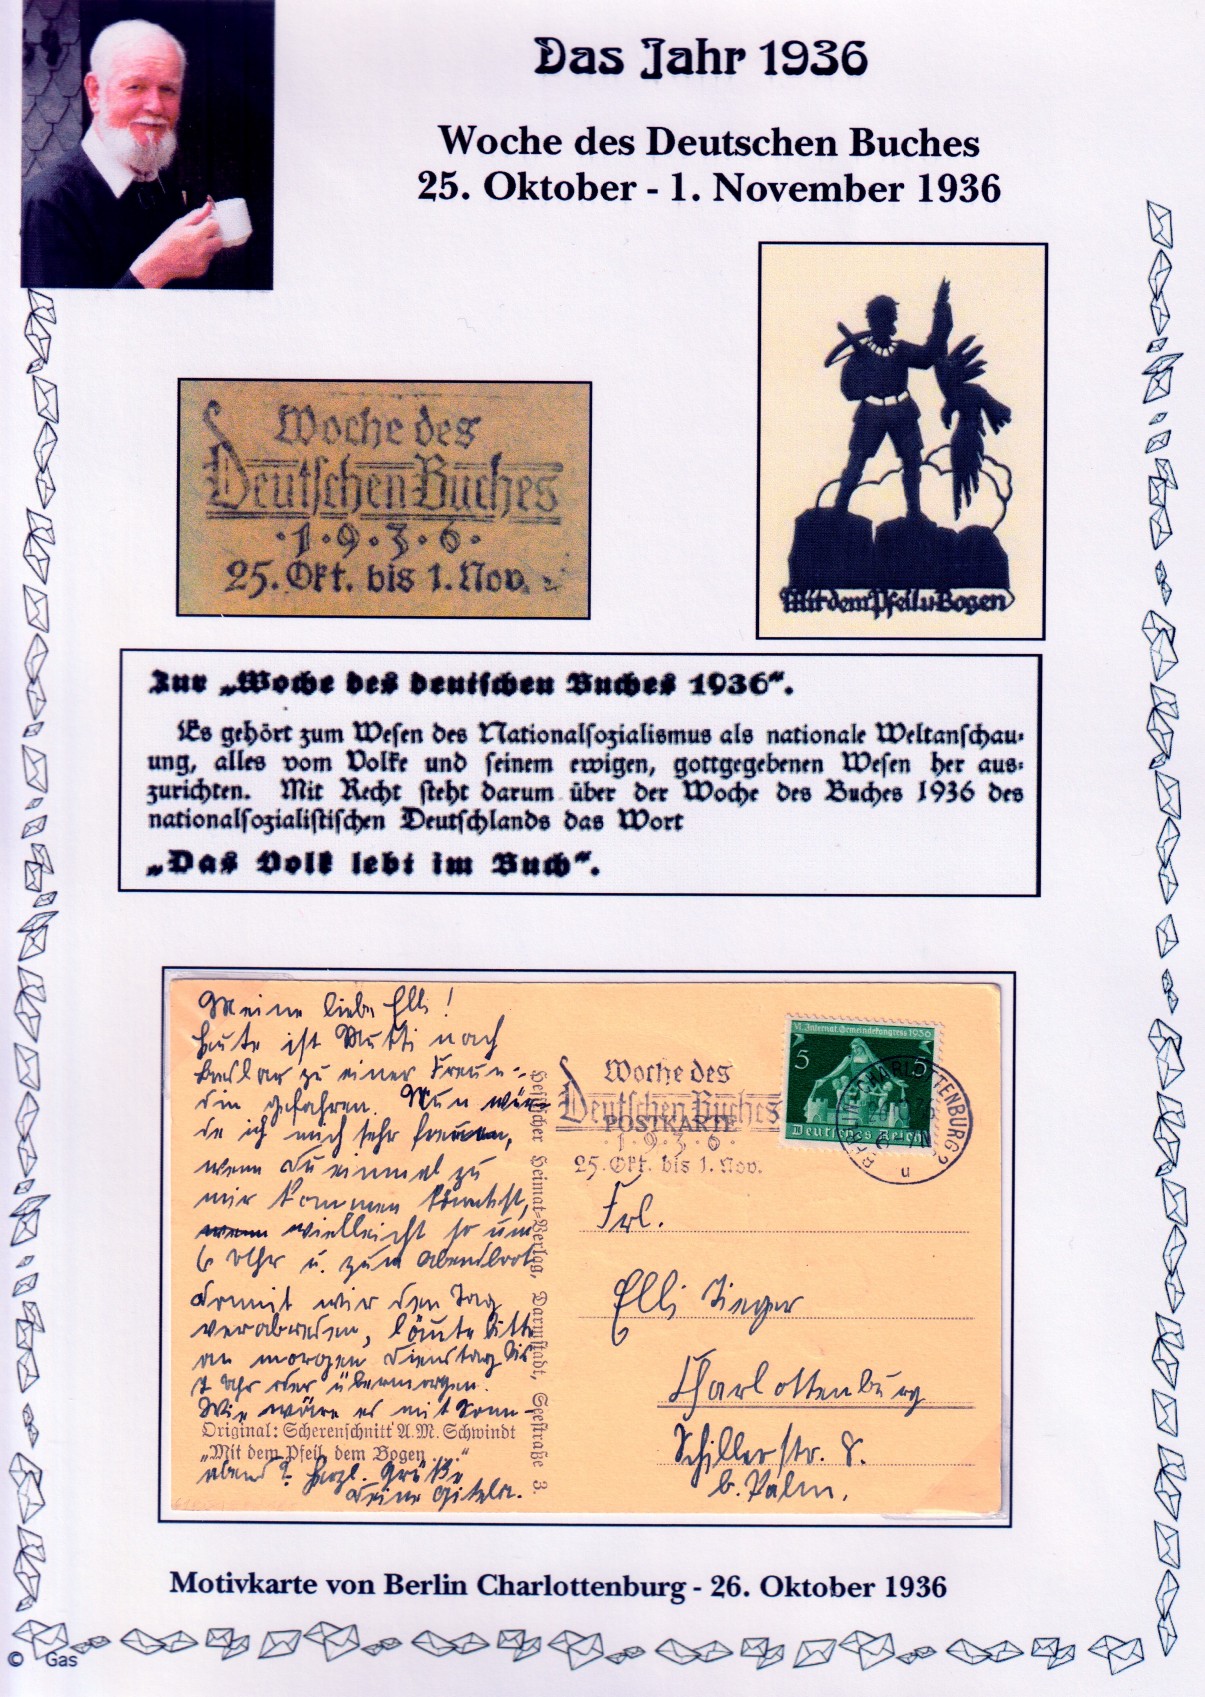 Das Jahr 1936
Woche des Deutschen Buches
25. Oktober - 1. November 1936
Woche des
Deutschen Buches
·1·9·3·6·
25. Okt. bis 1. Nov.
Mit dem Pfeil u. Bogen
Zur „Woche des deutschen Buches 1936“.
Es gehört zum Wesen des Nationalsozialismus als nationale Weltanschau-
ung, alles vom Volke und seinem ewigen, gottgegebenen Wesen her aus-
zurichten. Mit Recht steht darum über der Woche des Buches 1936 des
nationalsozialistischen Deutschlands das Wort
„Das Volk lebt im Buch“.
Meine liebe Elli!
Heute ist Mutti nach
zu einer Freun-
din gefahren. Nun wür-
de ich mich sehr freuen,
wenn du einmal zu
mir kommen könntest,
wenn vielleicht so um
6 Uhr u. zum Abendbrot
damit wir den Tag
verabreden, bitte
an morgen Dienstag bis
7 Uhr oder übermorgen.
Wie wäre es mit Sonn-
Original: Scherenschnitt A.M. Schwindt
„Mit dem Pfeil, dem Bogen . . .“
abend? Herzl. Grüße
Deine Gisela.
Heimat-Verlag, Darmstadt, Seestraße 3.
Woche des
Deutschen Buches
POSTKARTE
·1·9·3·6·
25. Okt. bis 1. Nov.
VI. Internat. Gemeindekongress 1936
5 5
Deutsches Reich
BERLIN-CHARLOTTENBURG 2
u
Frl.
Elli Sieger
Charlottenburg
Schillerstr. 8.
b. Palm.
Motivkarte von Berlin Charlottenburg - 26. Oktober 1936
© Gas